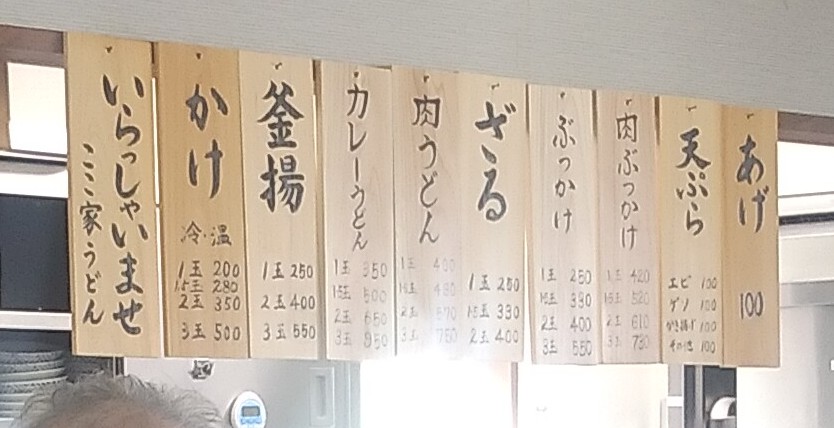 いらっしゃいませ
ここ家うどん
かけ
冷・温
1玉 200
1.5玉 280
2玉 350
3玉 500
釜揚
1玉 250
2玉 400
3玉 550
カレーうどん
1玉 350
1.5玉 500
2玉 650
3玉 950
肉うどん
1玉 400
1.5玉 480
2玉 570
3玉 750
ざる
1玉 250
1.5玉 330
2玉 400
ぶっかけ
1玉 250
1.5玉 330
2玉 400
3玉 550
肉ぶっかけ
1玉 420
1.5玉 520
2玉 610
3玉
天ぷら
エビ 100
ゲソ 100
かき揚げ 100
その他 100
あげ
100